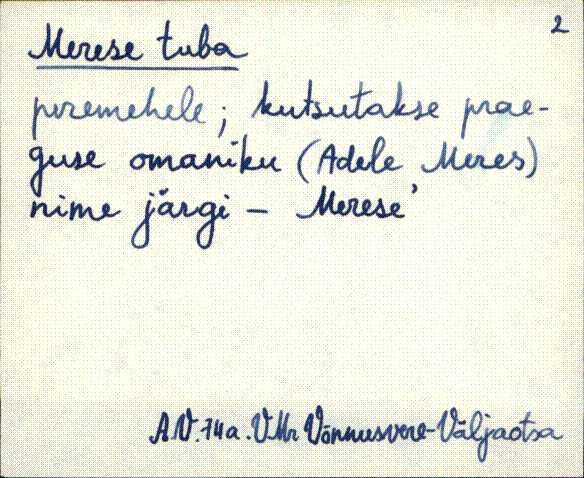 2
Merese tuba
peremehele; kutsutakse prae-
guse omaniku (Adele Meres)
nime järgi - Merese'
A.V. 74a. VMr Võnnusvere-Väljaotsa